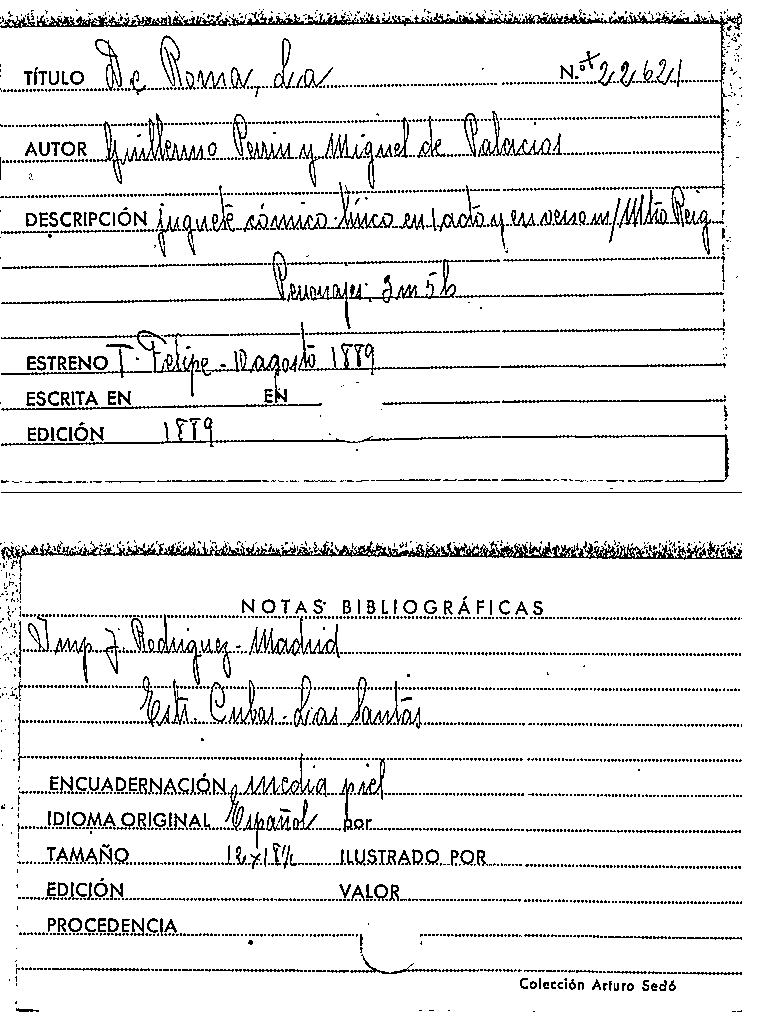 TÍTULO De Roma, La N.º+22621
AUTOR Guillermo Perrin y Miguel de Palacios
DESCRIPCIÓN juguete cómico-lírico en 1 acto y en verso m/ Mtro Reig
Personajes: 3m 5h
ESTRENO T. Felipe - 10 agosto 1889
ESCRITA EN EN
EDICIÓN 1889
NOTAS BIBLIOGRÁFICAS
Imp. J. Rodriguez - Madrid
Estr. Cubas - Las Santas
ENCUADERNACIÓN media piel
IDIOMA ORIGINAL Español por
TAMAÑO 12x18½ ILUSTRADO POR
EDICIÓN VALOR
PROCEDENCIA
Colección Arturo Sedó